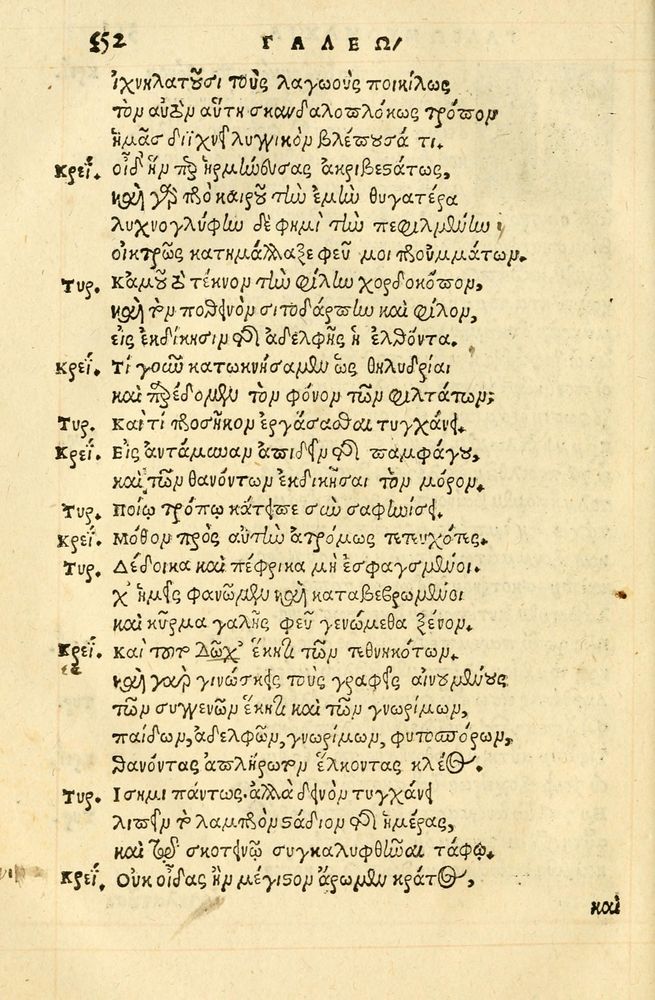 552 ΓΑΛΕΩ/
ἰχνηλατοῦσι τοὺς λαγωοὺς ποικίλως
τὸν αὐτὸν αὕτη σκανδαλοπλόκως τρόπον
ἡμᾶς διϊχνεῖ λυγγικὸν βλέπουσά τι.
Κρεΐ. οἶδ' ἥν περ ἡρμήνευσας ἀκριβεστάτως,
καὶ γὰρ πρὸ καιροῦ τὴν ἐμὴν θυγατέρα
λυχνογλύφην δέ φημι τὴν πεφιλμένην
οἰκτρῶς κατημάλαξε φεῦ μοι προὐμμάτων.
Τυρ. Κἀμοῦ δὲ τέκνον τὴν φίλην χορδοκόπον,
καὶ τὸν ποθεινὸν σιτοδάρπτην καὶ φίλον,
εἰς ἐκδίκησιν τῆς ἀδελφῆς ἢ ἐλθόντα.
Κρεΐ. Τί γοῦν κατωκνήσαμεν ὡς θηλυδρίαι
καὶ παρέδομεν τὸν φόνον τῶν φιλτάτων;
Τυρ. Καὶ τί προσῆκον ἐργάσασθαι τυγχάνει.
Κρεΐ. Εἰς ἀντάμυναν ἀπιδεῖν τῆς παμφάγου,
καὶ τῶν θανόντων ἐκδικῆσαι τὸν μόρον.
Τυρ. Ποίῳ τρόπῳ κάτειπε σὺν σαφηνίσει.
Κρεΐ. Μόθον πρὸς αὐτὴν ἀτρόμως τετευχότες.
Τυρ. Δέδοικα καὶ πέφρικα μὴ ἐσφαγσμένοι.
χ' ἡμεῖς φανῶμεν καὶ καταβεβρωμένοι
καὶ κῦρμα γαλῆς φεῦ γενώμεθα ξένον.
Κρεΐ. καὶ τοῦτο δῶχ' ἕκητι τῶν τεθνηκότων.
καὶ γὰρ γινώσκεις τοὺς γραφεῖς αἰνουμένους
τῶν συγγενῶν ἕκητι καὶ τῶν γνωρίμων,
παίδων, ἀδελφῶν, γνωρίμων, φυτοσπόρων,
θανόντας ἀπλήρωτον ἕλκοντας κλέος.
Τυρ. Ἴσημι πάντως. ἀλλὰ δεινὸν τυγχάνει
λιπεῖν τὸ λαμπρὸν στάδιον τῆς ἡμέρας,
καὶ τῷ σκοτεινῷ συγκαλυφθῆναι τάφῳ.
Κρεΐ. Οὐκ οἶδας ἣν μέγιστον ἄρωμεν κράτος,
καὶ